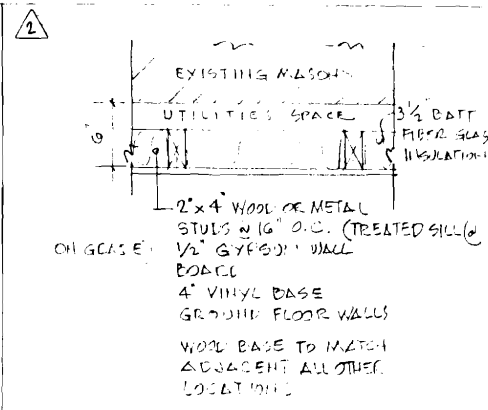 2
EXISTING MASONRY
UTILITIES SPACE
6"
3 1/2" BATT
FIBER GLAS
INSULATION
2" x 4" WOOD OR METAL
STUDS @ 16" O.C. (TREATED SILL @
ON GRADE)
1/2" GYPSUM WALL
BOARD
4" VINYL BASE
GROUND FLOOR WALLS
WOOD BASE TO MATCH
ADJACENT ALL OTHER
LOCATIONS